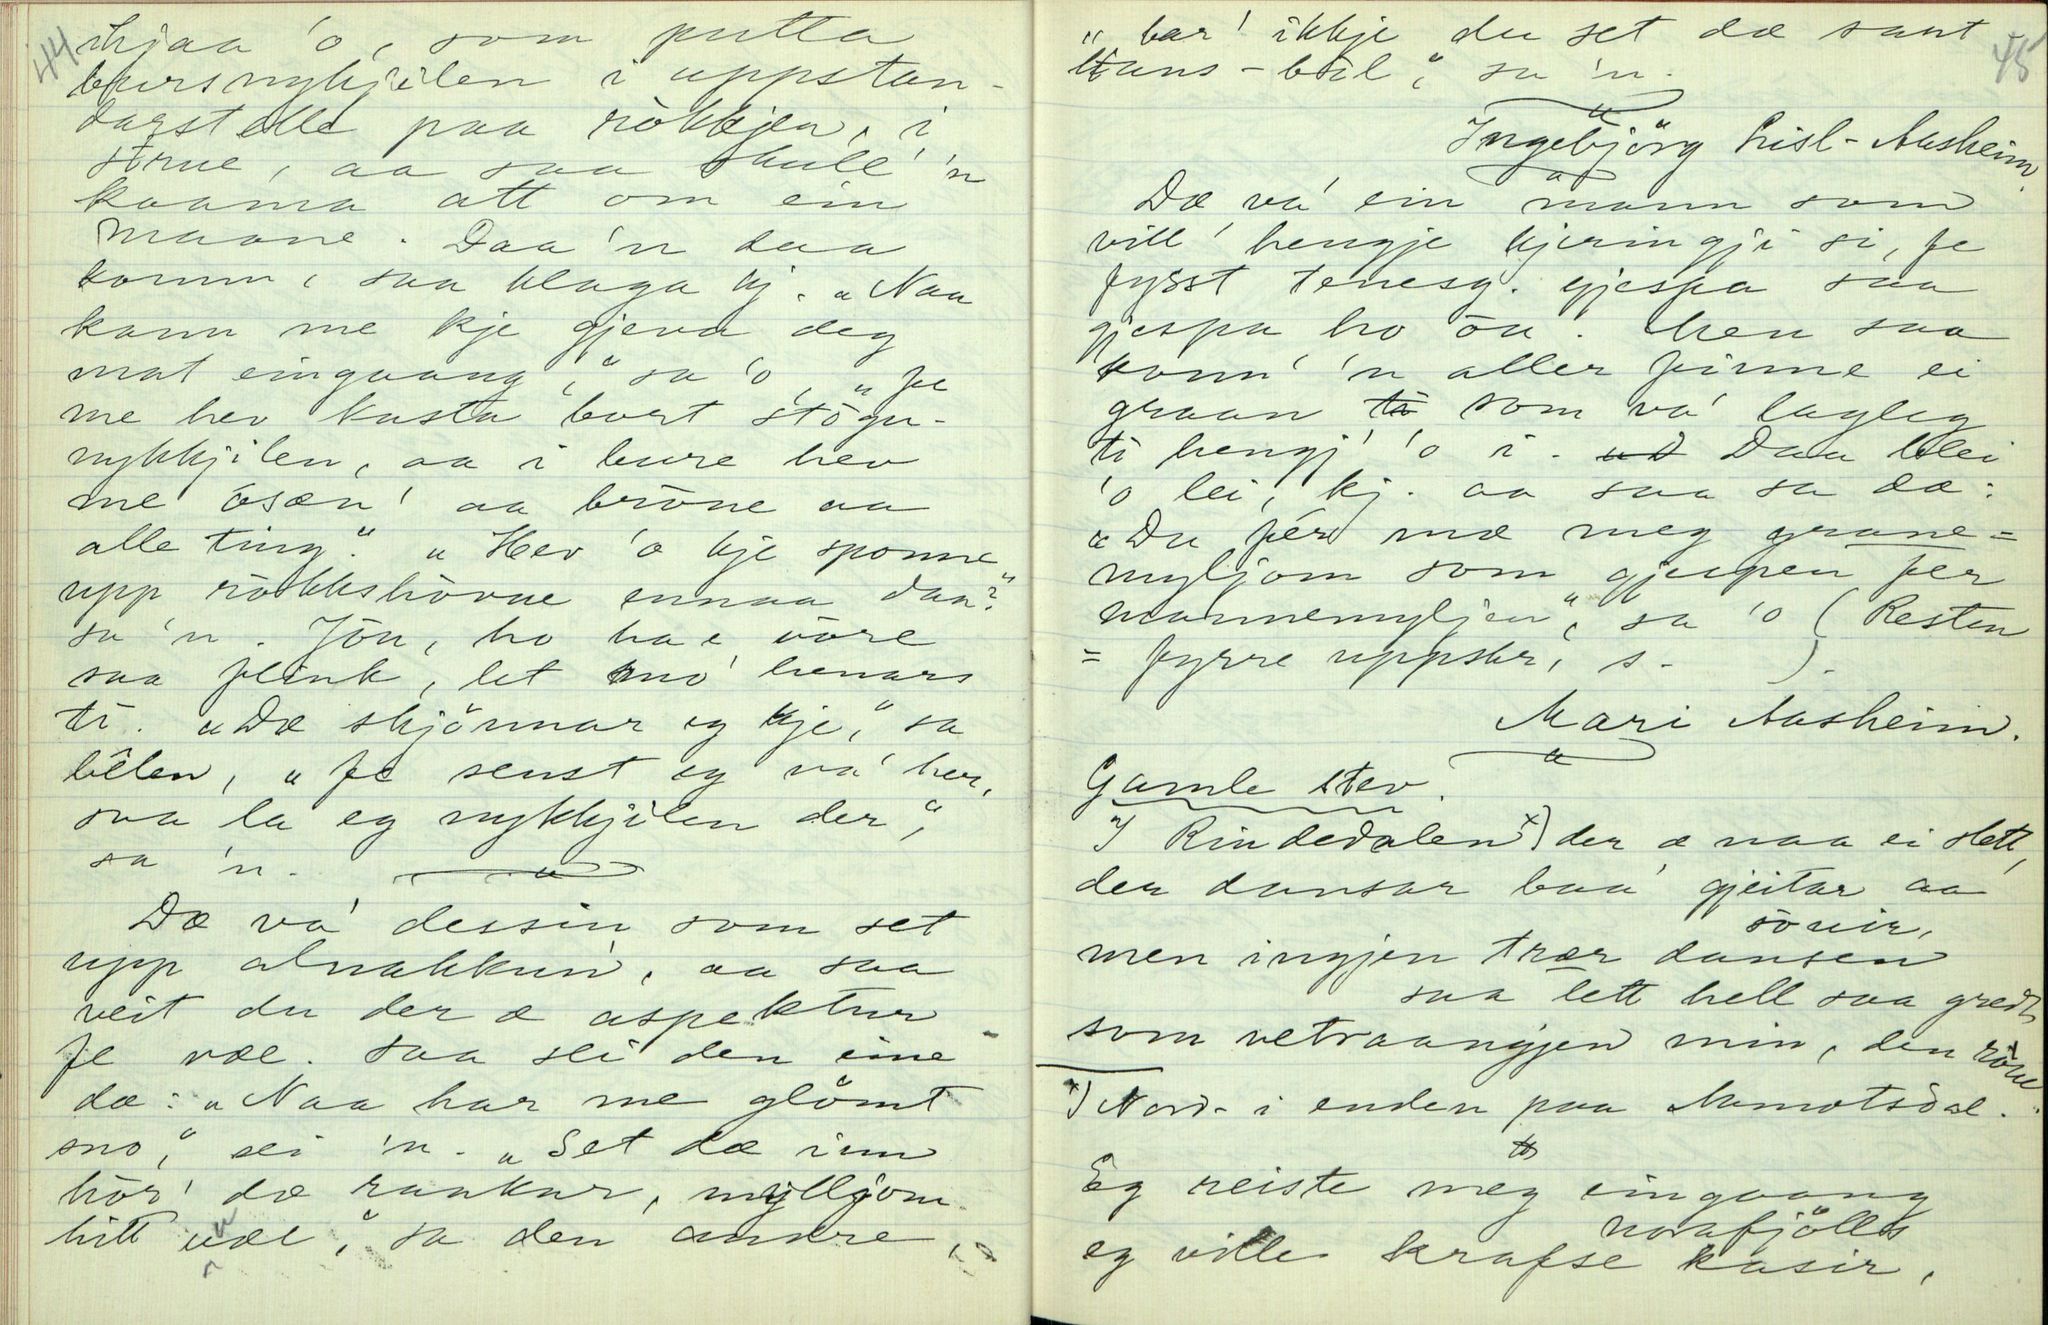 44
hjaa 'o, som putta
bursnykjilen i uppstan-
darstelle paa rökkjen, i
strue, aa saa skull' 'n
kaama att om ein
maane. Daa 'n daa
komm, saa klaga kj. „Naa
kann me kje gjeva deg
mat eingaang," sa 'o, „fe
me hev kasta bort stögu-
nykkjilen, aa i bure hev
me ösen' aa bröne aa
alle ting." „Hev 'o kje sponne
upp rökkshövue ennaa daa?"
sa 'n. Jön, ho ha e vöre
saa flink, let mo' henars
ti. „Dæ skjönnar eg kje," sa
bêlen, „fe senst eg va' her,
saa la eg nykkjilen der",
sa 'n.
Dæ va' dessin som set
upp alnakkun', aa saa
veit du der æ aspektur
fe væe. Saa sei den eine
dæ: „Naa har me glömt
sno," sei 'n. „Set dæ inn
hör' dæ raakar, mylljom
hitt væe," sa den andre,
45
„bar' ikkje du set dæ sant
hans-bil", sa 'n.
Ingebjörg Lisl-Aasheim.
Dæ va' ein mann som
vill' hengje kjeringji si, fe
fysst tenesg. gjespa saa
gjespa ho öu. Men saa
komm' 'n aller finne ei
graan som va' lagleg
ti hengj' 'o i. Daa blei
'o lei, kj. aa saa sa dæ:
„Du fér mæ meg grane-
myljom som gjeispen fer
mannemyljen", sa 'o (Resten
= fyrre uppskr, s. ).
Mari Aasheim.
Gamle stev.
I Rindedalen x) der æ naa ei slett,
der dansar baa' gjeitar aa
söuir,
men ingjen trær dansen
saa lett hell saa gredt
som vetraangjen min, den röue.
x) Nord- i enden paa Aamotsdal.
Eg reiste meg eingaang
norafjölls
eg ville krafse kasir,